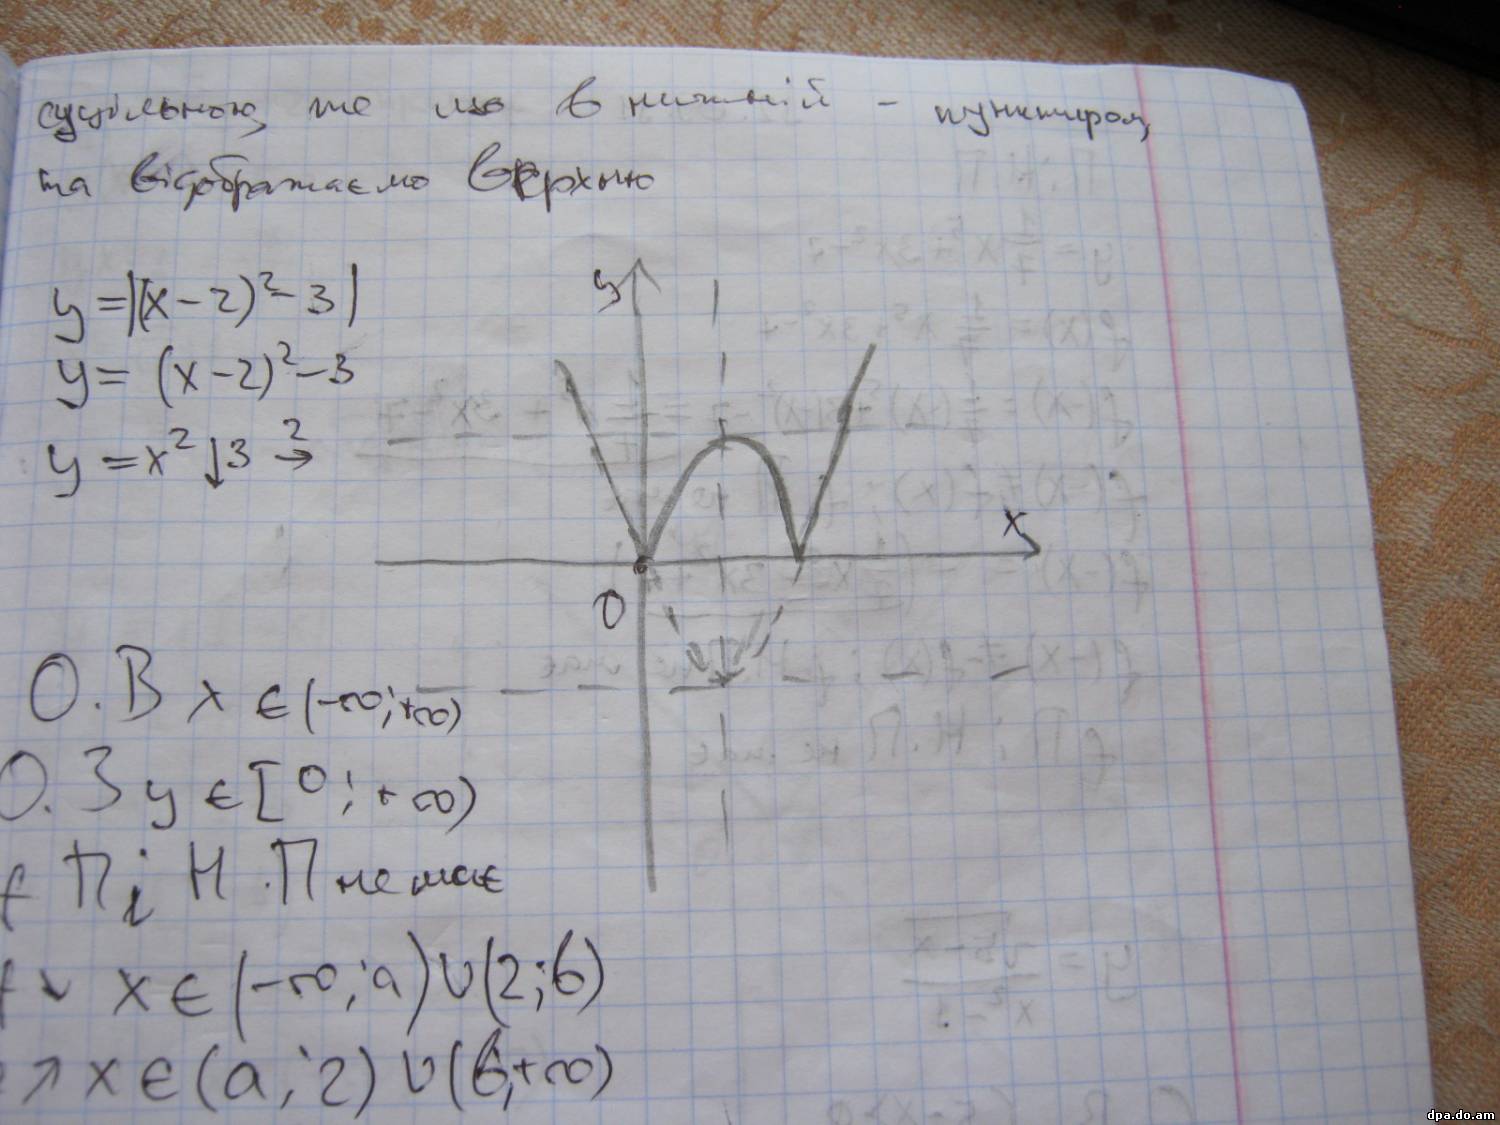 суцільною, те що в нижній - пунктиром,
та відображаємо верхню
y=|(x-2)²-3|
y= (x-2)²-3
y=x² ↓3 2→
y
x
0
О.В x ∈ (-∞;+∞)
О.З y ∈ [0;+∞)
f П і Н.П не має
f ↘ x ∈ (-∞;a)∪(2;b)
↗ x ∈ (a;2)∪(b;+∞)
dpa.do.am